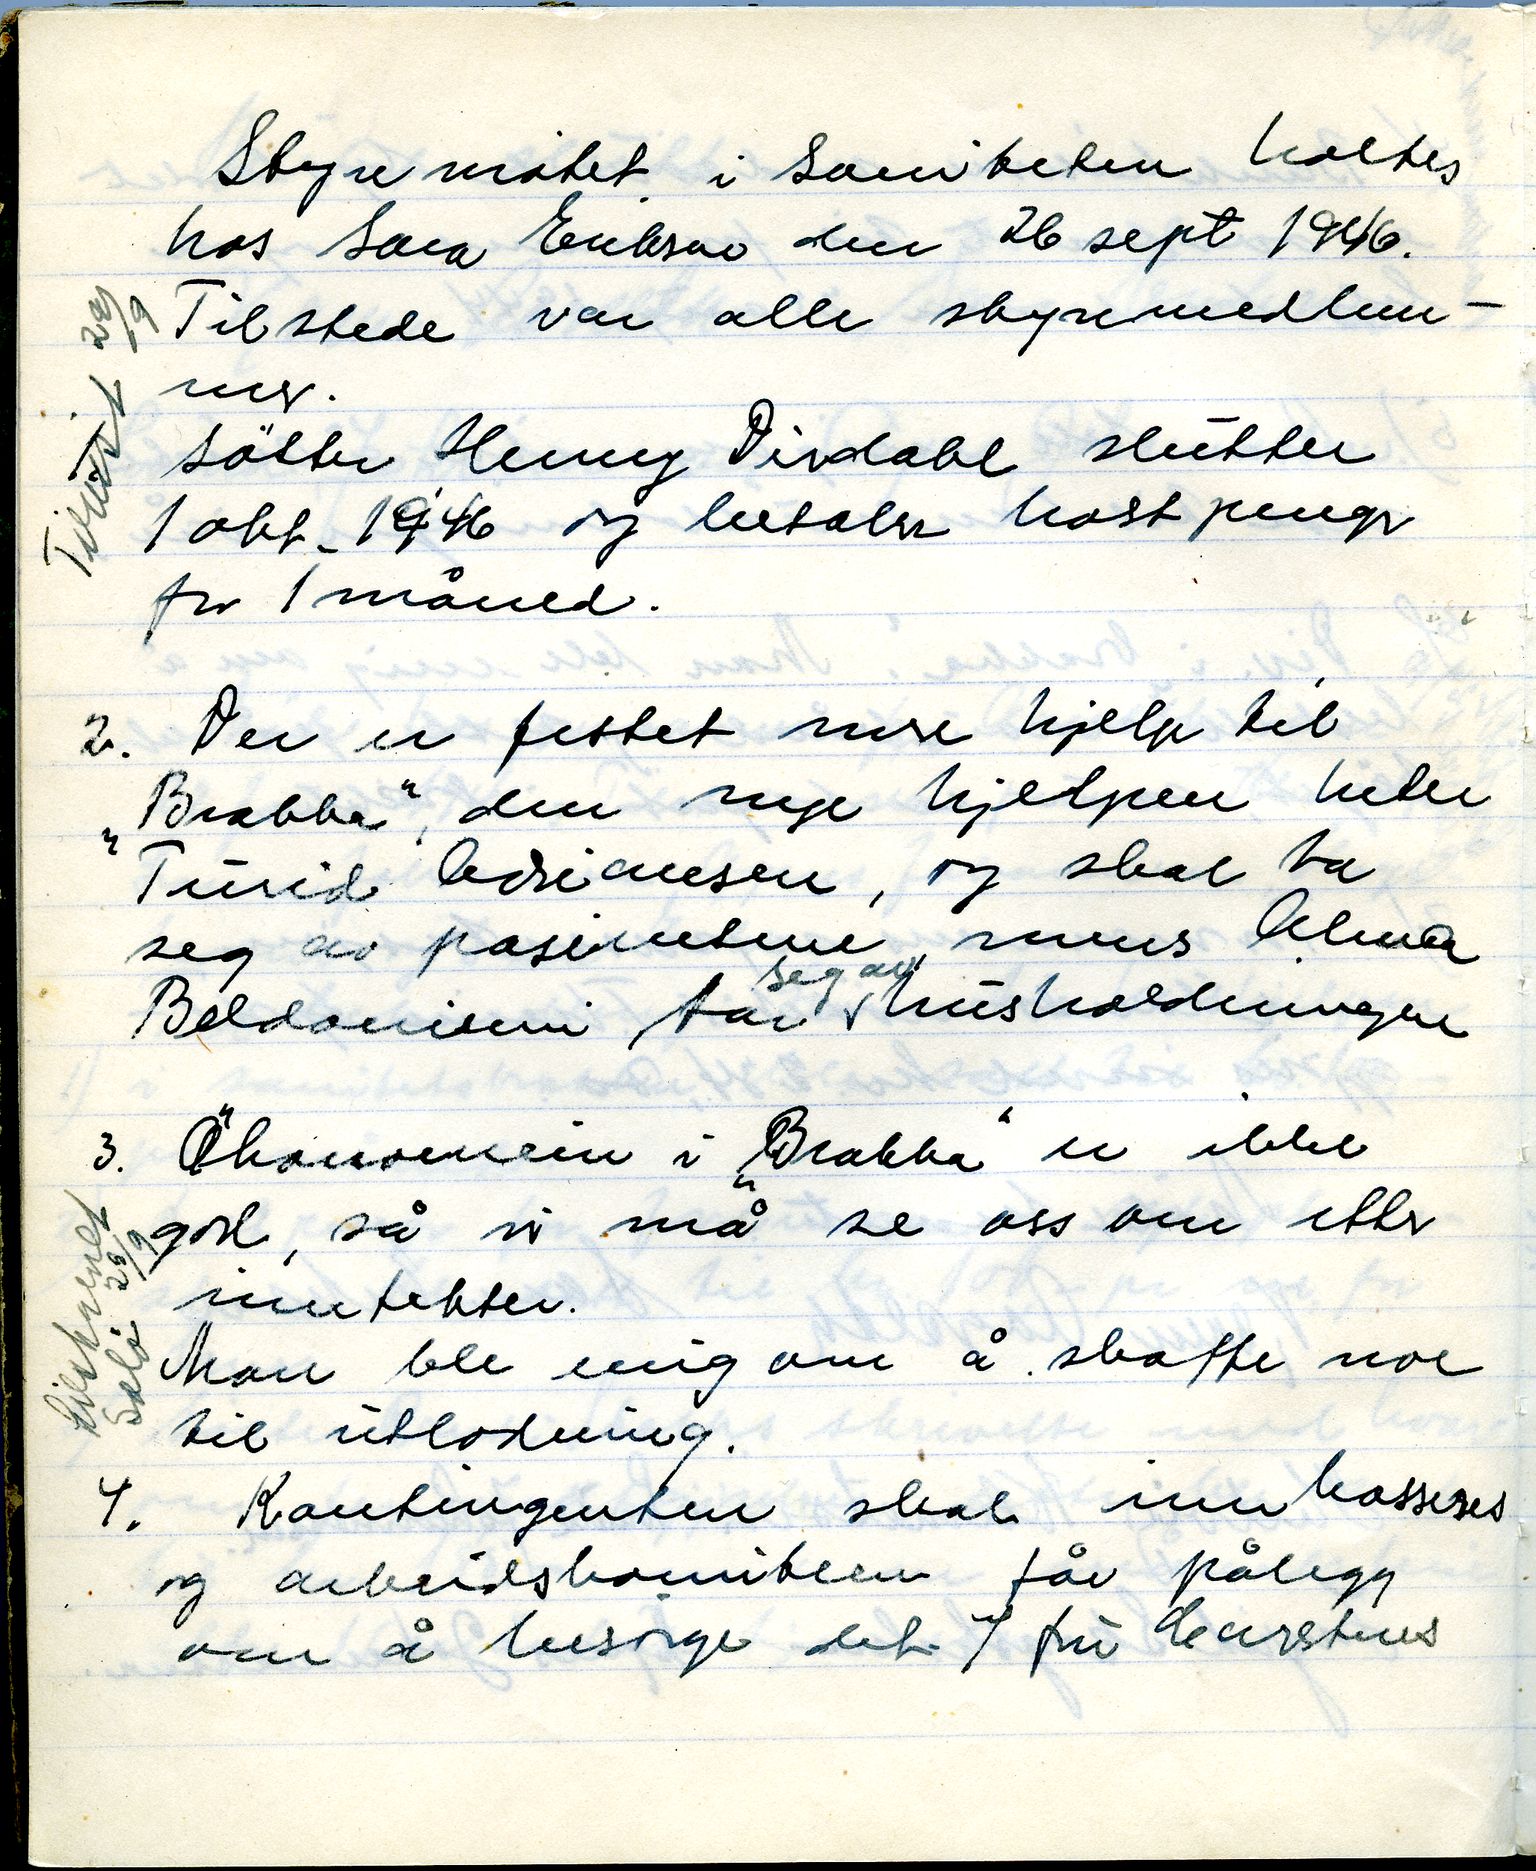 Styremötet i Saniteten holtes
hos Sara Erikson den 26 sept 1946.
Tilstede var alle styremedlem-
mer.
Söster Henny Dirdahl slutter
1 okt. 1946 og betaler kostpenger
for 1 måned.
2. Der er festet mere hjelp til
„Brakka", den nye hjelpen heter
Turid Adriansen, og skal ta
seg av pasientene, mens Alma
Beldonismi tar seg av husholdningen
3. Ökonomien i „Brakka" er ikke
god, så vi må se oss om etter
inntekter.
Man ble enig om å skaffe noe
til utlodning.
4. Kontingenten skal innkasseres
og arbeidskomiteen får pålegg
om å besörge det. / fru Karstens
Tiltrått 29/9
29/9